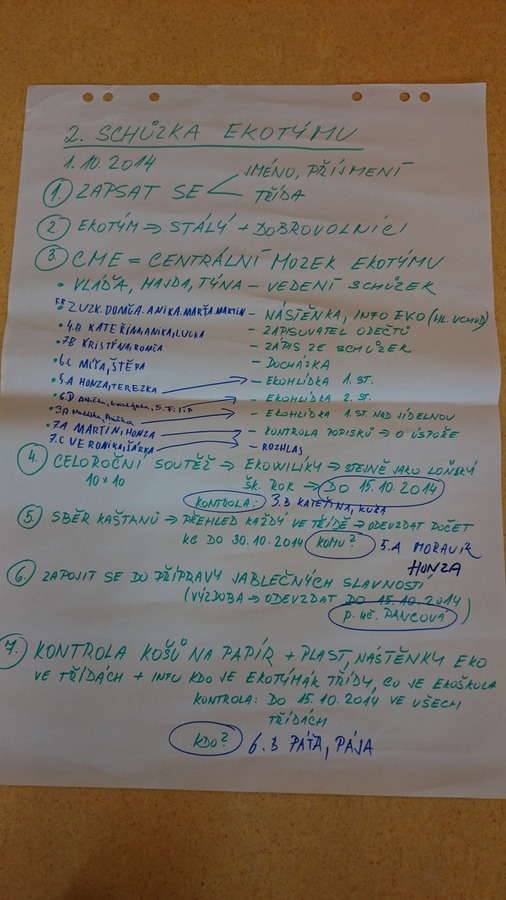 2. SCHŮZKA EKOTÝMU
1.10.2014
1. ZAPSAT SE < JMÉNO, PŘÍJMENÍ
TŘÍDA
2. EKOTÝM ⇒ STÁLÝ + DOBROVOLNÍCI
3. CME = CENTRÁLNÍ MOZEK EKOTÝMU
• VLÁĎA, MAJDA, TÝNA – VEDENÍ SCHŮZEK
ZUZK. DOMČA. ANIKA. MARŤA. MARTIN – NÁSTĚNKA, INFO EKO (HL. VCHOD)
• 4.B KATEŘINA, ANIKA, LUCKA – ZAPISOVATEL ODEČTŮ
• 7.B KRISTÝNA, ROMČA – ZÁPIS ZE SCHŮZEK
• 6.C MÍŠA, ŠTĚPA – DOCHÁZKA
• 5.A HONZA, TEREZKA → – EKOHLÍDKA 1. ST.
• 6.D → – EKOHLÍDKA 2. ST.
• 3.A → – EKOHLÍDKA 1. ST. NAD JÍDELNOU
• 7.A MARTIN, HONZA → – KONTROLA POPISKŮ → O ÚSPOŘE
• 7.C VERONIKA, ŠÁRKA → – ROZHLAS
4. CELOROČNÍ SOUTĚŽ → EKOWILÍKY → STEJNĚ JAKO LOŇSKÝ
10 × 10 ŠK. ROK → DO 15.10.2014
KONTROLA: 3.B KATEŘINA, KUBA
5. SBĚR KAŠTANŮ → PŘEHLED KAŽDÝ VE TŘÍDĚ → ODEVZDAT POČET
KG DO 30.10.2014 KOMU? 5.A MORAVÍK
HONZA
6. ZAPOJIT SE DO PŘÍPRAVY JABLEČNÝCH SLAVNOSTÍ
(VÝZDOBA → ODEVZDAT DO 15.10.2014
P. UČ. PANCOVÁ)
7. KONTROLA KOŠŮ NA PAPÍR + PLAST, NÁSTĚNKY EKO
VE TŘÍDÁCH + INFO KDO JE EKOTÝMÁK TŘÍDY, CO JE EKOŠKOLA
KONTROLA: DO 15.10.2014 VE VŠECH
TŘÍDÁCH
KDO? 6.B PÁŤA, PÁJA